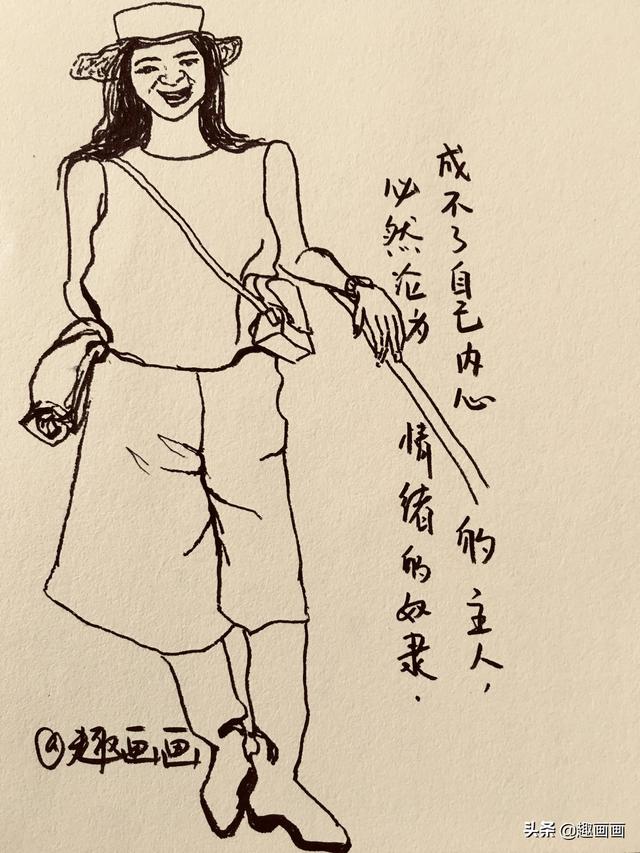 成不了自己内心的主人，
必然沦为情绪的奴隶.
@趣画画
头条 @趣画画